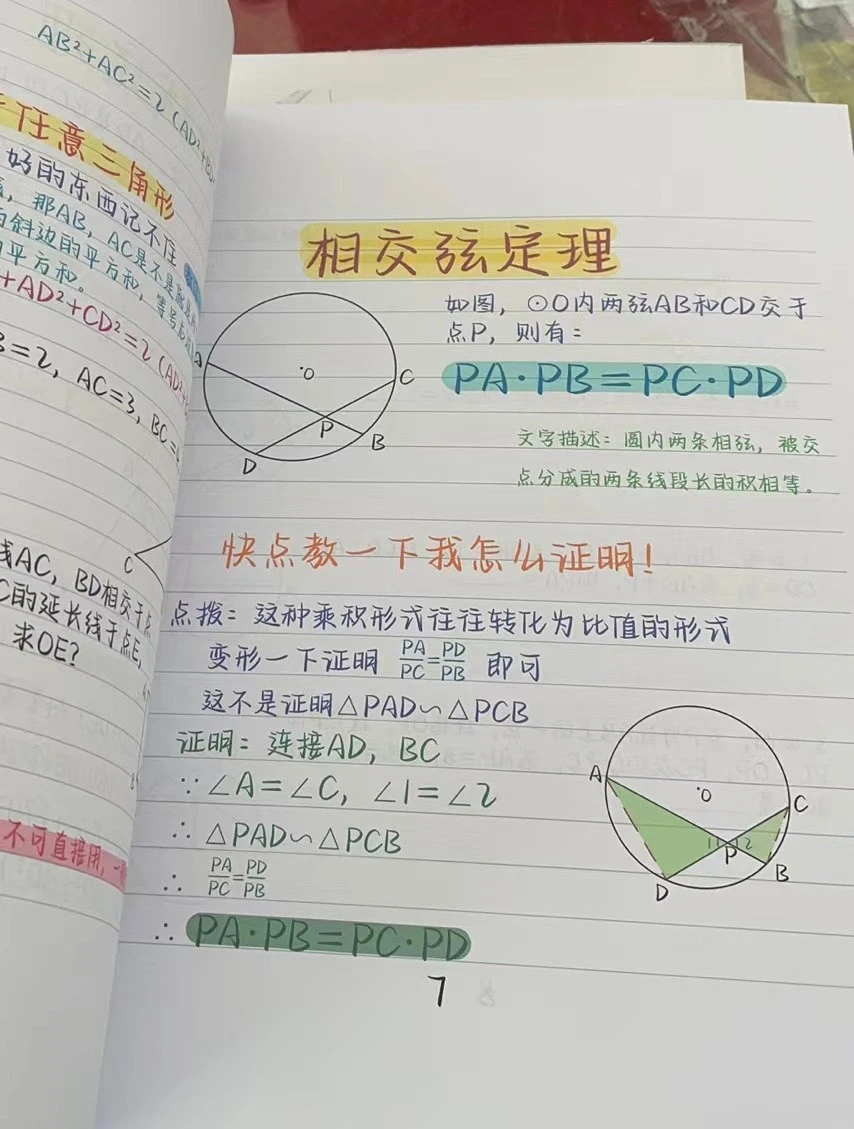 AB²+AC²=2(AD²+BD
任意三角形
好的东西记不住
那AB，AC是不是就是两
斜边的平方和，等号右边
平方和。
+AD²+CD²=2(AD²+B
B=2，AC=3，BC=4
C
线AC，BD相交于点
C的延长线于点E，
求OE？
不可直接用，一
相交弦定理
如图，⊙O内两弦AB和CD交于
点P，则有：
PA·PB=PC·PD
A
O
C
P
B
D
文字描述：圆内两条相弦，被交
点分成的两条线段长的积相等。
快点教一下我怎么证明！
点拨：这种乘积形式往往转化为比值的形式
变形一下证明 PA/PC=PD/PB 即可
这不是证明△PAD∽△PCB
证明：连接AD，BC
∵∠A=∠C，∠1=∠2
∴△PAD∽△PCB
∴ PA/PC=PD/PB
∴ PA·PB=PC·PD
A
O
C
1
2
P
B
D
7